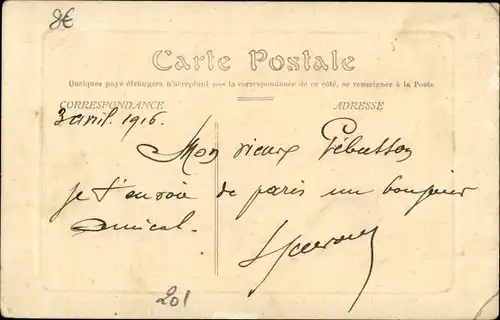 8€
Carte Postale
Quelques pays étrangers n'acceptent pas la correspondance de ce côté, se renseigner à la Poste
CORRESPONDANCE
ADRESSE
3 avril. 1916.
Mon vieux
je t'envoie de paris un bonjour
amical.
201